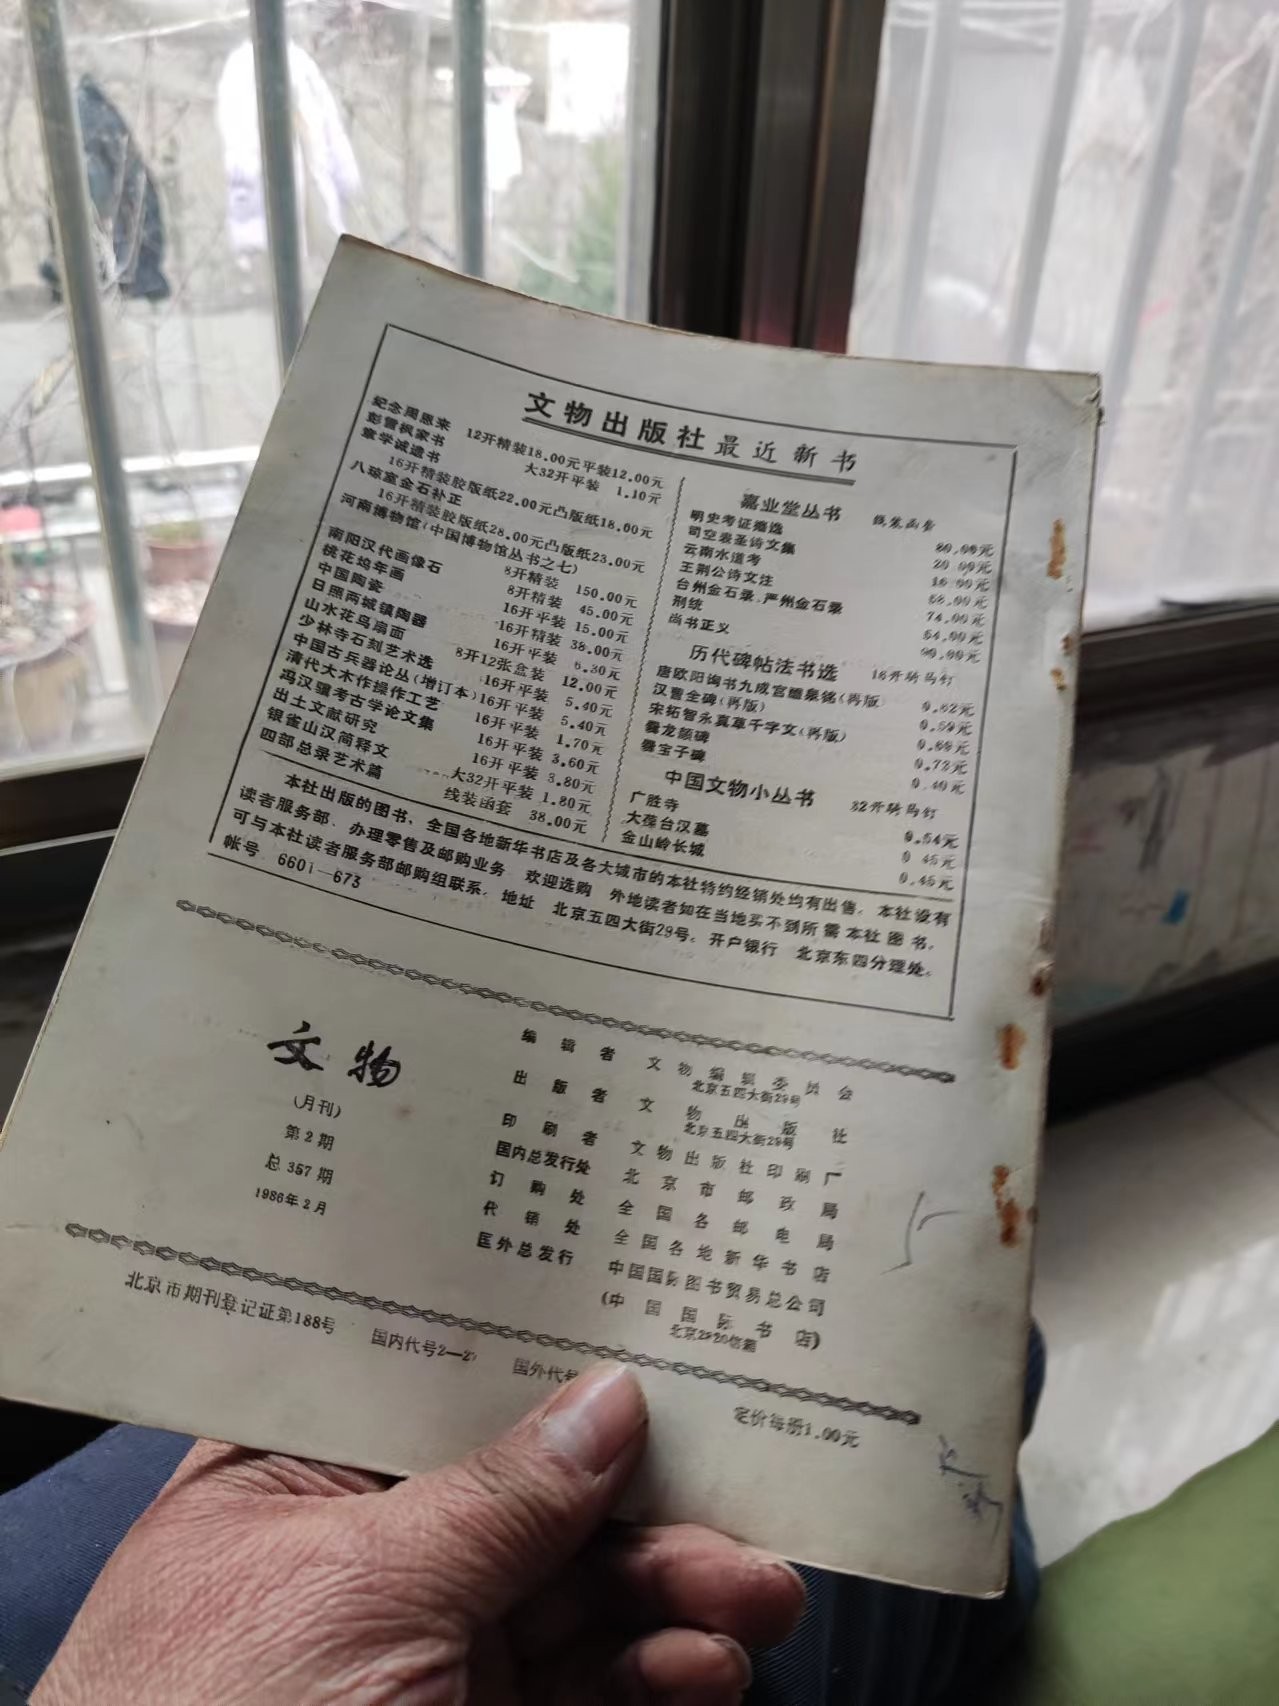 文物出版社最近新书
纪念周恩来 12开精装18.00元平装12.00元
彭雪枫家书 大32开平装 1.10元
章学诚遗书
16开精装胶版纸22.00元凸版纸18.00元
八琼室金石补正
16开精装胶版纸28.00元凸版纸23.00元
河南博物馆(中国博物馆丛书之七)
8开精装 150.00元
南阳汉代画像石 8开精装 45.00元
桃花坞年画 16开平装 15.00元
中国陶瓷 16开精装 38.00元
日照两城镇陶器 16开平装 6.30元
山水花鸟扇面 8开12张盒装 12.00元
少林寺石刻艺术选 16开平装 5.40元
中国古兵器论丛(增订本)16开平装 5.40元
清代大木作操作工艺 16开平装 1.70元
冯汉骥考古学论文集 16开平装 3.60元
出土文献研究 16开平装 3.80元
银雀山汉简释文 大32开平装 1.80元
四部总录艺术篇 线装函套 38.00元
嘉业堂丛书 线装函套
明史考证攟逸 80.00元
司空表圣诗文集 20.00元
云南水道考 16.00元
王荆公诗文注 68.00元
台州金石录、严州金石录 74.00元
刑统 54.00元
尚书正义 90.00元
历代碑帖法书选 16开骑马钉
唐欧阳询书九成宫醴泉铭(再版) 0.62元
汉曹全碑(再版) 0.59元
宋拓智永真草千字文(再版)
爨龙颜碑 0.73元
爨宝子碑 0.40元
中国文物小丛书 32开骑马钉
广胜寺 0.54元
大葆台汉墓 0.45元
金山岭长城 0.45元
本社出版的图书,全国各地新华书店及各大城市的本社特约经销处均有出售。本社设有
读者服务部、办理零售及邮购业务 欢迎选购 外地读者如在当地买不到所需本社图书,
可与本社读者服务部邮购组联系。地址 北京五四大街29号。开户银行 北京东四分理处。
帐号 6601—673
文物
(月刊)
第2期
总357期
1986年2月
编辑者 文物编辑委员会
北京五四大街29号
出版者 文物出版社
北京五四大街29号
印刷者 文物出版社印刷厂
国内总发行处 北京市邮政局
订购处 全国各邮电局
代销处 全国各地新华书店
国外总发行 中国国际图书贸易总公司
(中国国际书店)
北京2820信箱
北京市期刊登记证第188号 国内代号2—2 国外代号 定价每册1.00元